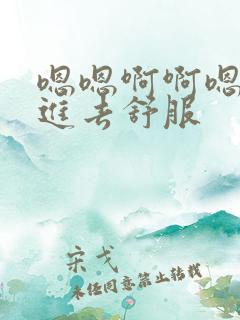 嗯嗯啊啊嗯
進去舒服
宋戈
未经同意禁止转载